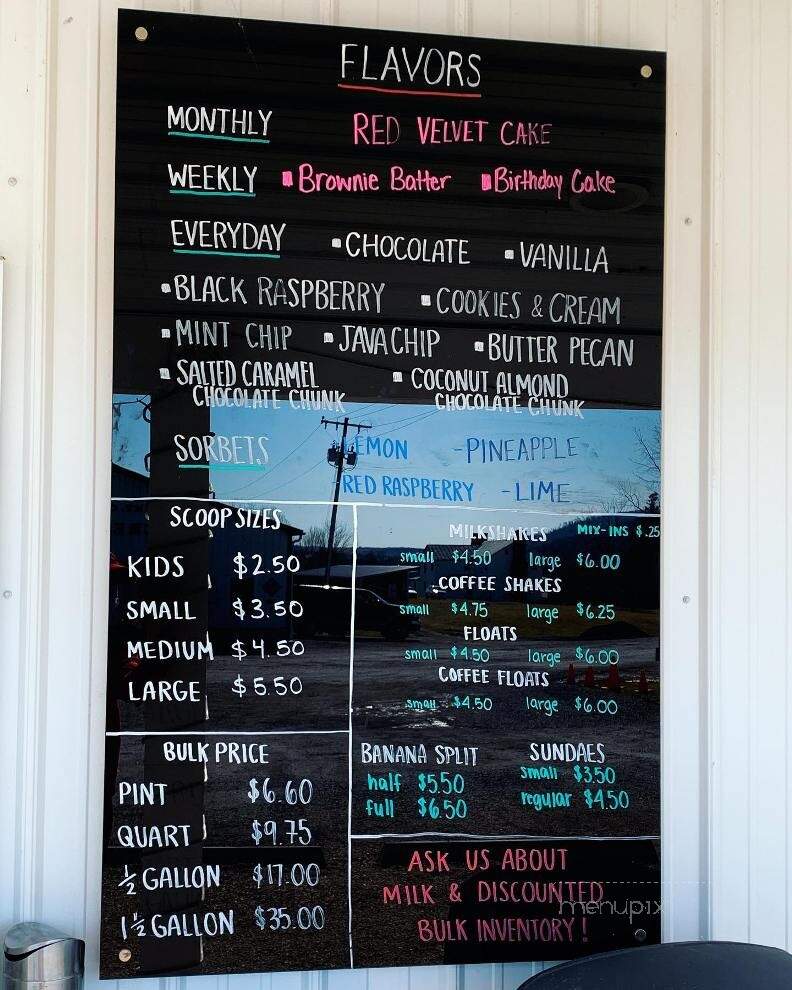 FLAVORS
MONTHLY RED VELVET CAKE
WEEKLY Brownie Batter Birthday Cake
EVERYDAY CHOCOLATE VANILLA
BLACK RASPBERRY COOKIES & CREAM
MINT CHIP JAVA CHIP BUTTER PECAN
SALTED CARAMEL COCONUT ALMOND
CHOCOLATE CHUNK CHOCOLATE CHUNK
SORBETS LEMON -PINEAPPLE
RED RASPBERRY -LIME
SCOOP SIZES
KIDS $2.50
SMALL $3.50
MEDIUM $4.50
LARGE $5.50
MILKSHAKES MIX-INS $.25
small $4.50 large $6.00
COFFEE SHAKES
small $4.75 large $6.25
FLOATS
small $4.50 large $6.00
COFFEE FLOATS
small $4.50 large $6.00
BULK PRICE
PINT $6.60
QUART $9.75
½ GALLON $17.00
1½ GALLON $35.00
BANANA SPLIT
half $5.50
full $6.50
SUNDAES
small $3.50
regular $4.50
ASK US ABOUT
MILK & DISCOUNTED
BULK INVENTORY!
menupix